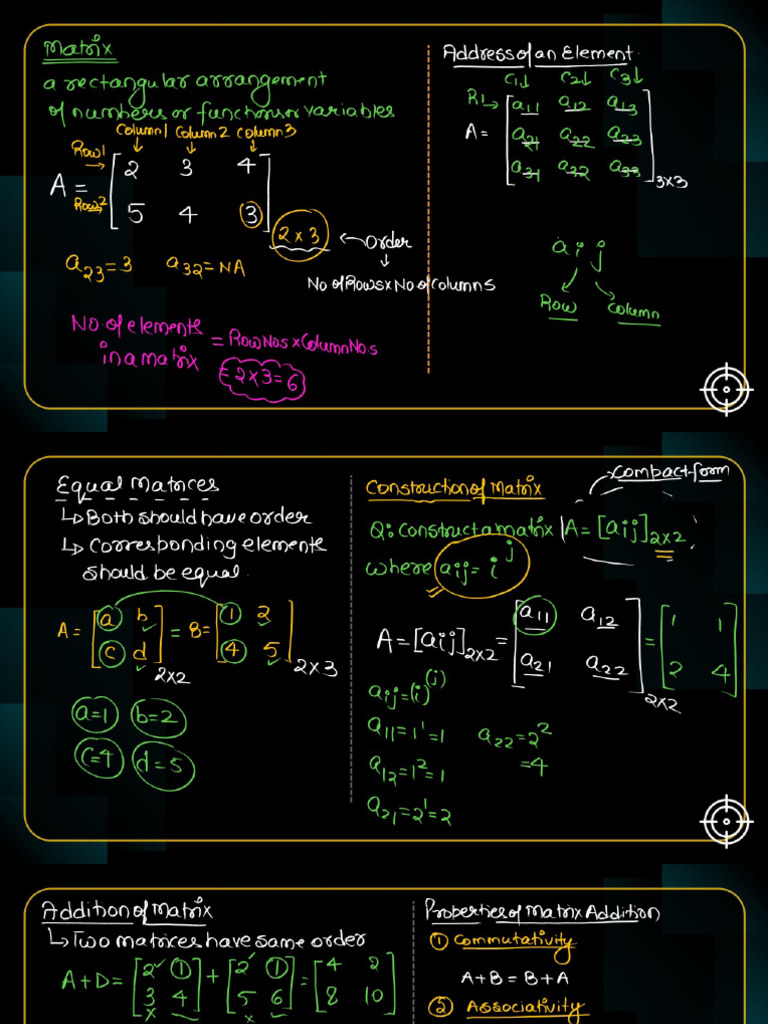 Matrix
a rectangular arrangement
of numbers or functions or variables
Column1 Column2 Column3
Row1
A = [ 2 3 4
Row2
5 4 3 ] 2×3
← Order
↓
No of Rows × No of Columns
a23 = 3 a32 = NA
No of elements
in a matrix = Row Nos × Column No.s
= 2×3 = 6
Address of an Element
C1↓ C2↓ C3↓
R1→ a11 a12 a13
A = a21 a22 a23
a31 a32 a33 3×3
aij
Row Column
Equal Matrices
↳ Both should have order
↳ Corresponding elements
should be equal.
A = [ a b = B = [ 1 2
c d ] 2×2 4 5 ] 2×3
a=1 b=2
c=4 d=5
Compact form
Construction of Matrix
Q: Construct a matrix A = [aij]2×2
where aij = i^j
A = [aij]2×2 = [ a11 a12 = [ 1 1
a21 a22 ] 2×2 2 4 ]
aij = (i)^(j)
a11 = 1^1 = 1 a22 = 2^2
= 4
a12 = 1^2 = 1
a21 = 2^1 = 2
Addition of Matrix
↳ Two matrices have same order
A+D = [ 2 1 + [ 2 1 = [ 4 2
3 4 ] 5 6 ] 8 10 ]
Properties of Matrix Addition
① Commutativity
A+B = B+A
② Associativity